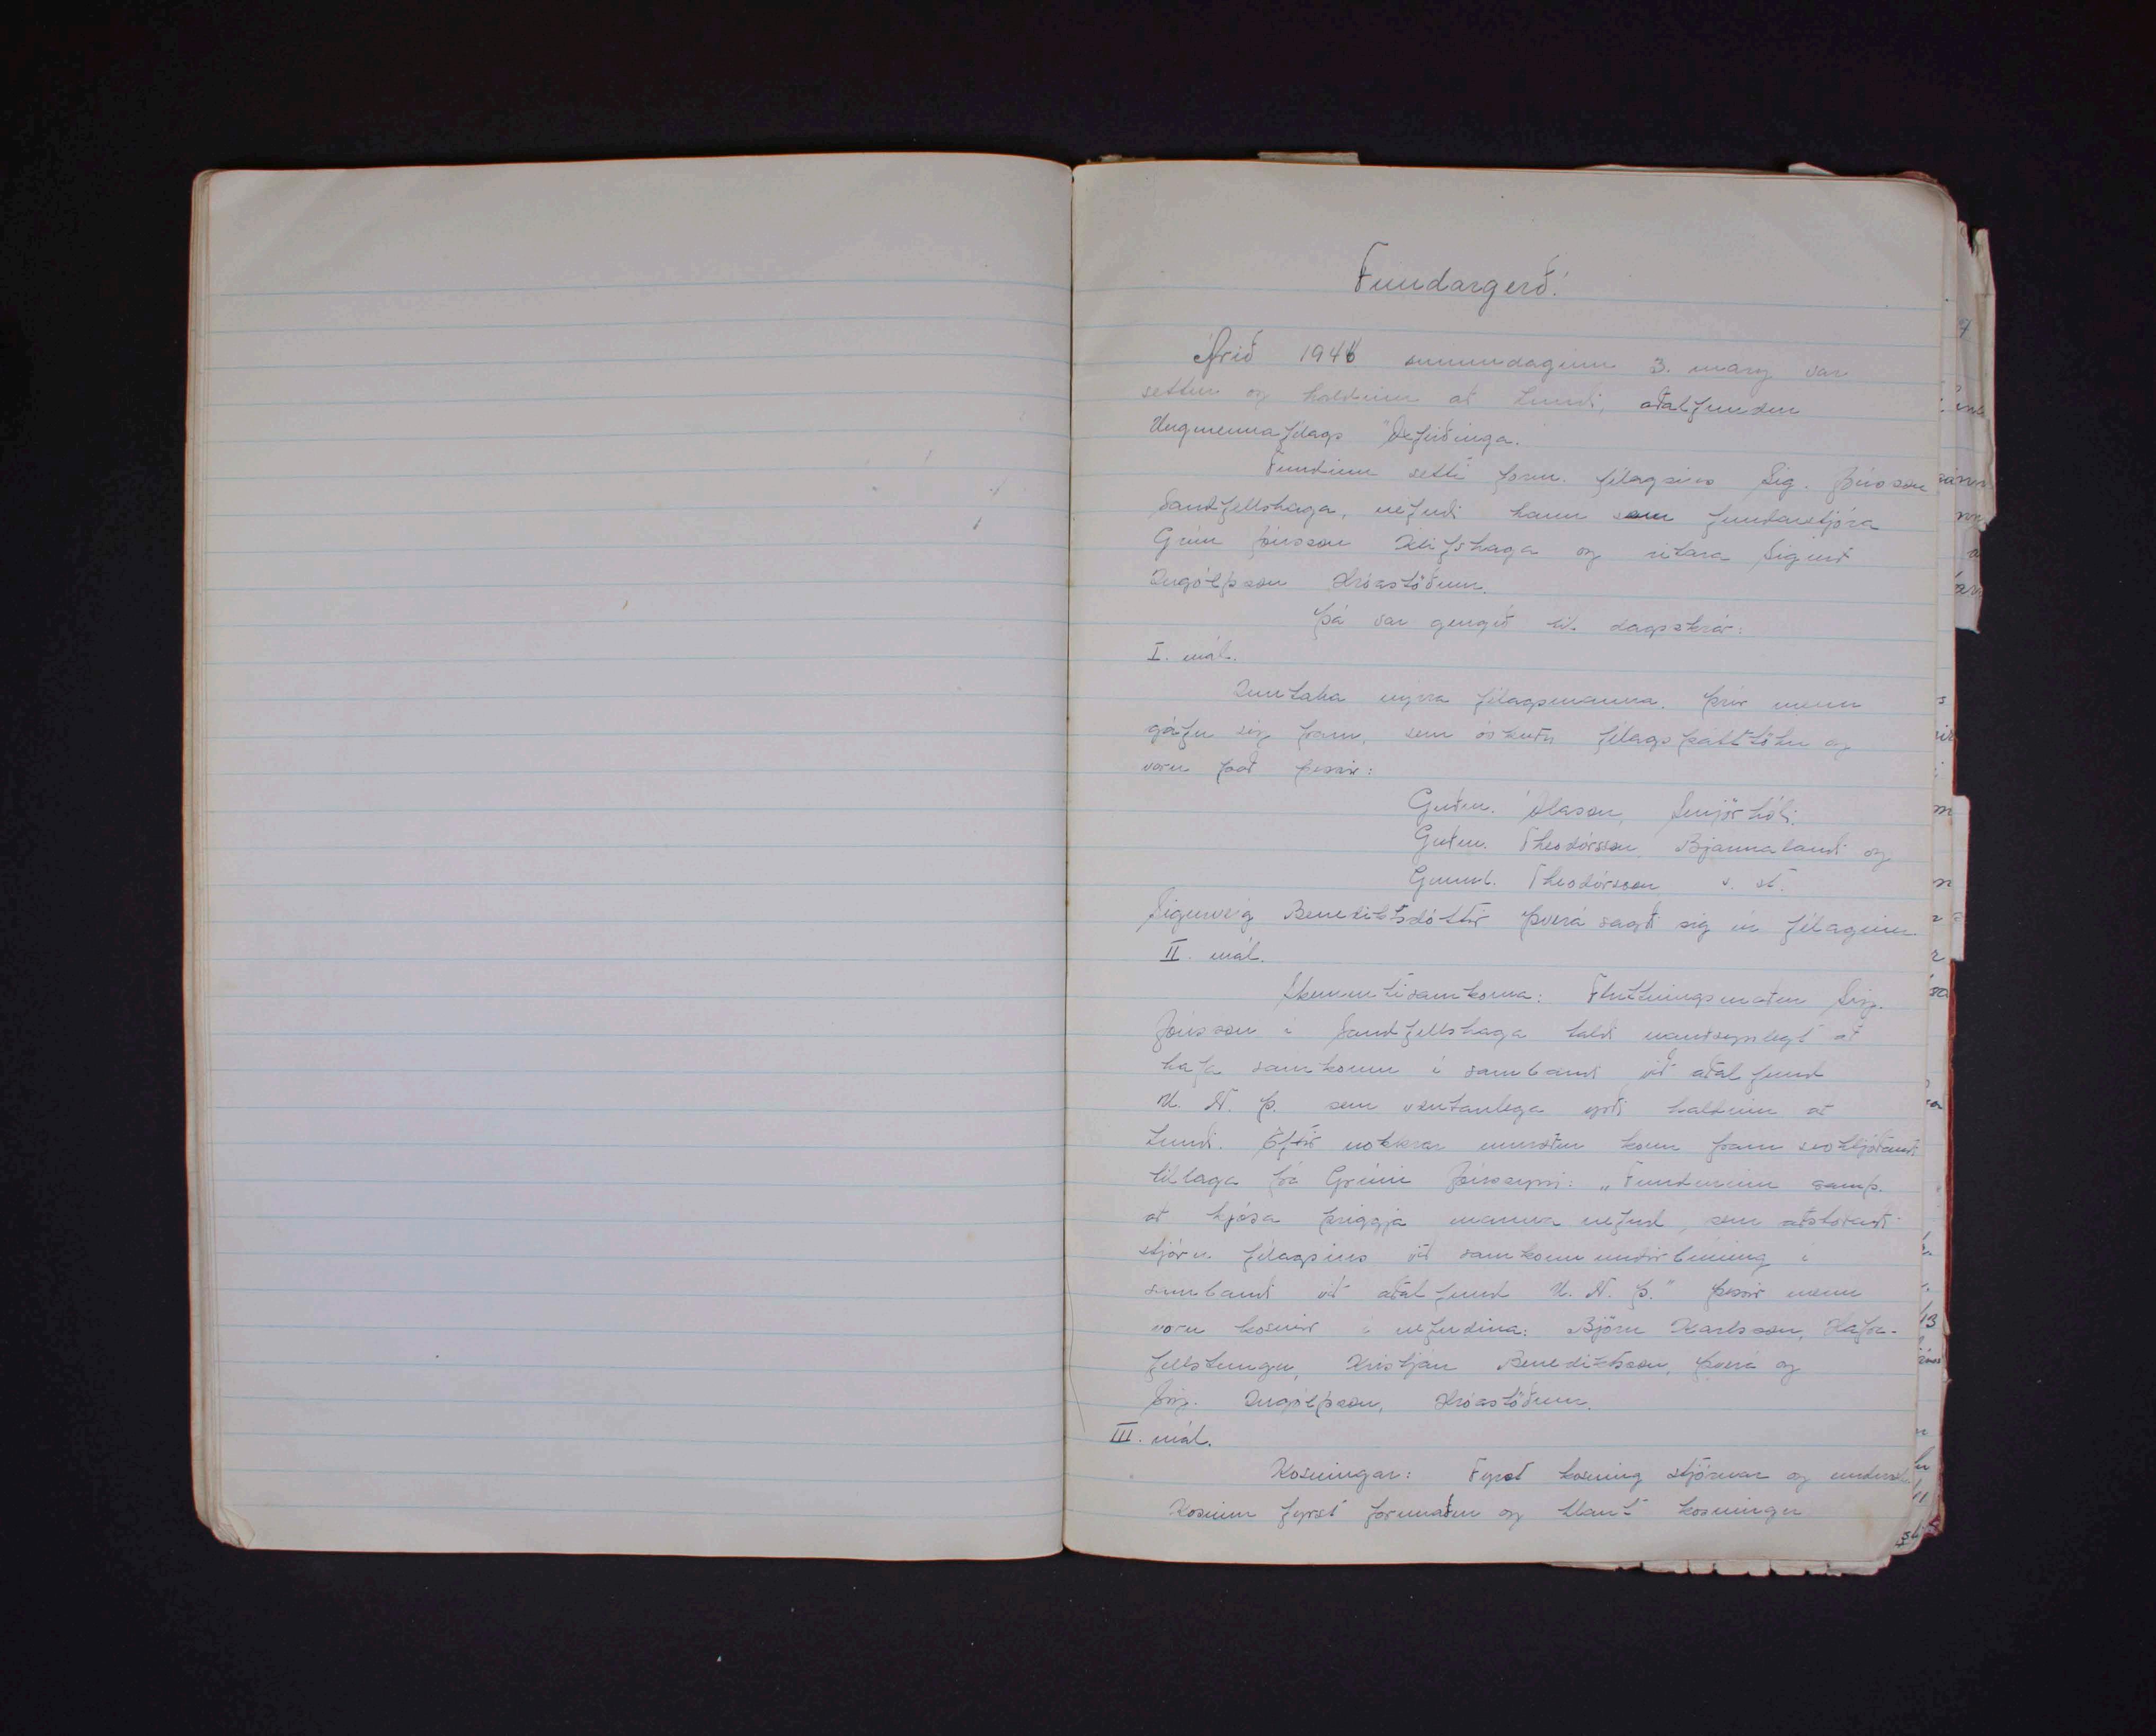 Fundargerð.
Árið 1946 sunnudaginn 3. marz var
settur og haldinn að Lundi, aðalfundur
Ungmennafélags Öxfirðinga.
Fundinn setti form. félagsins Sig. Jónsson
Sandfellshaga, nefndi hann sem fundarstjóra
Grím Jónsson Klifshaga og ritara Sigurð
Ingólfsson Hróastöðum.
Þá var gengið til dagsskrár:
I. mál.
Inntaka nýrra félagsmanna. Þrír menn
gáfu sig fram, sem óskuðu félagsþátttöku og
voru það þessir:
Guðm. Ólason, Smjörhóli.
Guðm. Theodórsson Bjarmalandi og
Gunnl. Theodórsson s. st.
Sigurveig Benediktsdóttir Þverá sagði sig úr félaginu.
II. mál.
Skemmtisamkoma: Flutningsmaður Sig.
Jónsson í Sandfellshaga taldi nauðsynlegt að
hafa samkomu í sambandi við aðalfund
U. N. Þ. sem væntanlega yrði haldinn að
Lundi. Eftir nokkrar umræður kom fram svohljóðandi
tillaga frá Grími Jónssyni: „Fundurinn samþ.
að kjósa þriggja manna nefnd, sem aðstoðaði
stjórn félagsins við samkomuundirbúning í
sambandi við aðalfund U. N. Þ." Þessir menn
voru kosnir í nefndina: Björn Karlsson, Hafra-
fellstungu, Kristján Benediktsson, Þverá og
Sig. Ingólfsson, Hróastöðum.
III. mál.
Kosningar: Fyrst kosning stjórnar og
Kosinn fyrst formaður og hlaut kosningu